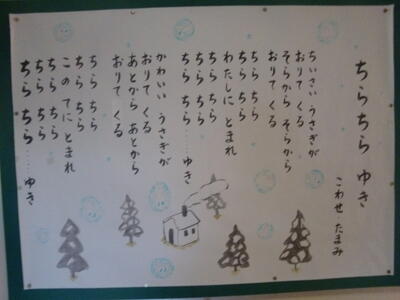 ちらちら ゆき
こわせ たまみ
ちいさい うさぎが
おりて くる
そらから そらから
おりて くる
ちら ちら
ちら ちら
わたしに とまれ
ちら ちら
ちら ちら……ゆき
かわいい うさぎが
おりて くる
あとから あとから
おりて くる
ちら ちら
ちら ちら
この てに とまれ
ちら ちら
ちら ちら……ゆき